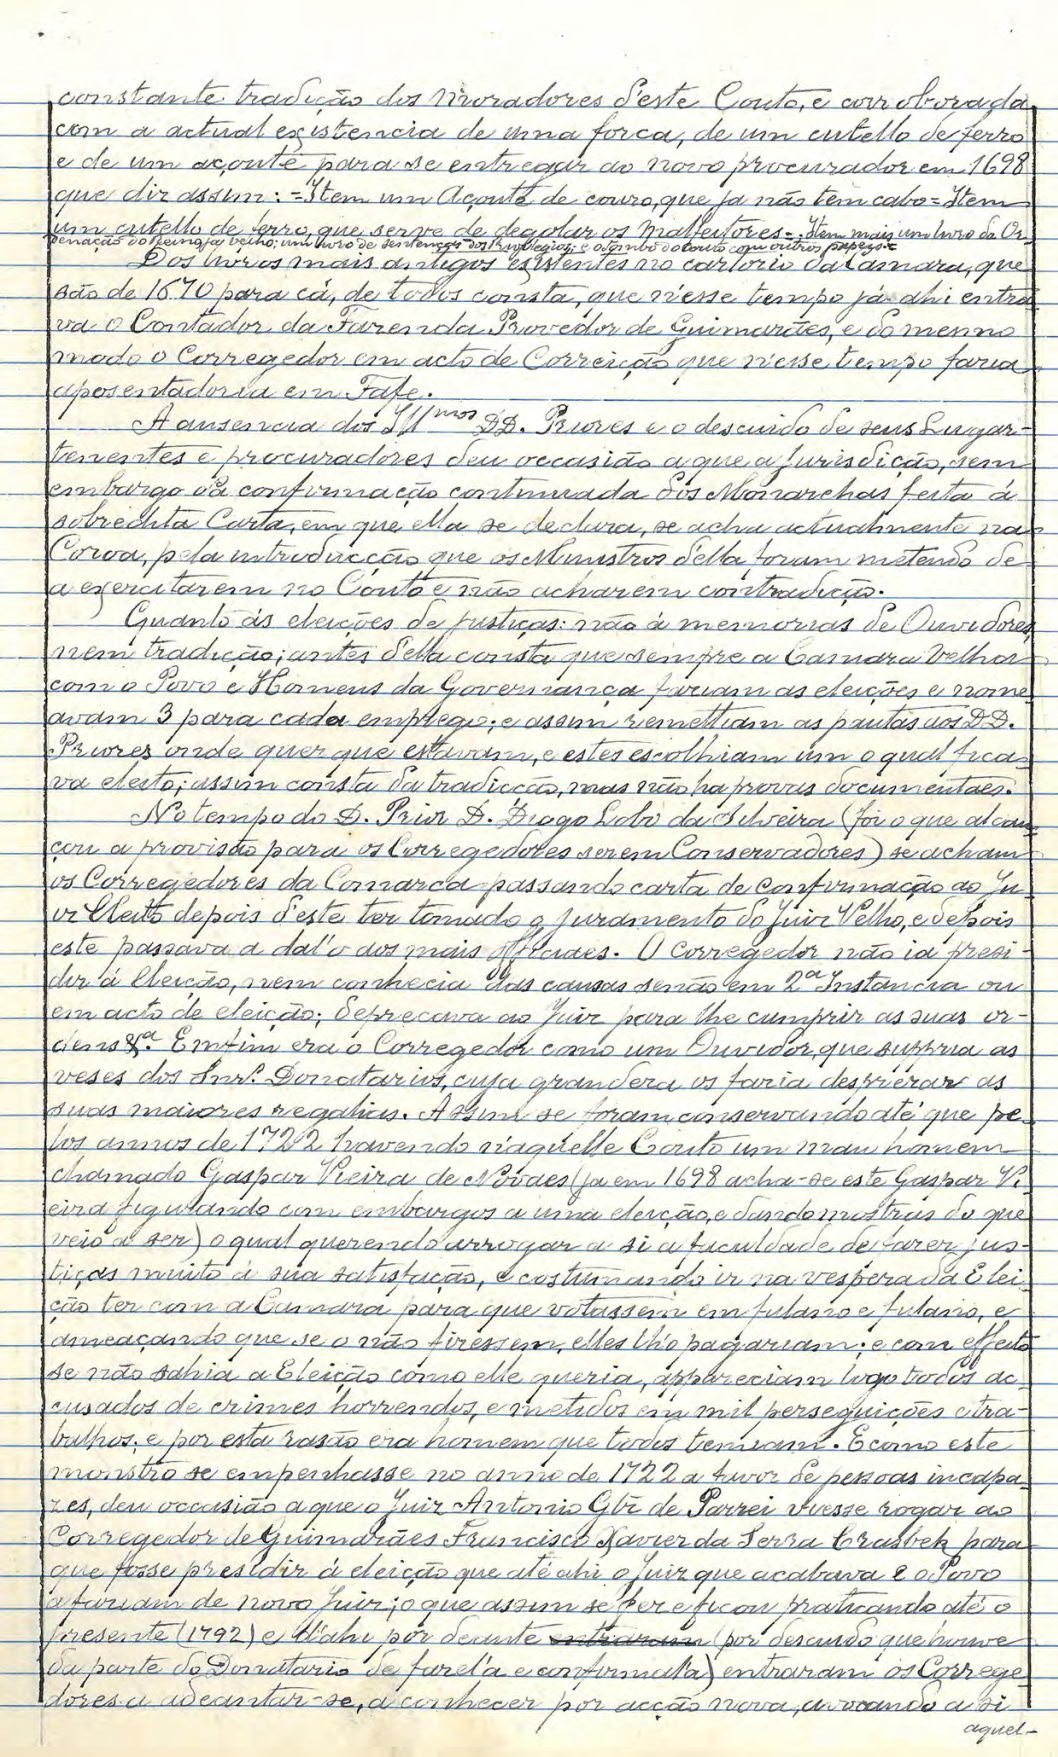 constante tradição dos Moradores d'este Couto, e corroborada
com a actual existencia de uma forca, de um cutello de ferro
e de um açoute para se entregar ao novo procurador em 1698
que diz assim: = Item um Açoute de couro, que ja não tem cabo = Item
um cutello de ferro, que serve de degolar os Malfeitores = Item mais um livro da Or-
denação do Reino, ja velho; um livro de sentenças dos Privilegios; e o tombo do Couto com outros papeis =
Dos livros mais antigos existentes no cartorio da Camara, que
são de 1670 para cá, de todos consta, que n'esse tempo já ahi entra
va o Contador da Fazenda Provedor de Guimarães, e do mesmo
modo o Corregedor em acto de Correição que n'esse tempo fazia
aposentadoria em Fafe.
A ausencia dos Ill^mos DD. Priores e o descuido de seus Lugar-
tenentes e procuradores deu occasião a que a Jurisdição, sem
embargo da confirmação continuada dos Monarchas feita á
sobredita Carta, em que ella se declara, se acha actualmente na
Coroa, pela introducção que os Ministros d'ella foram metendo de
a exercitarem no Couto e não acharem contradição.
Quanto ás eleições de justiças: não á memorias de Ouvidores,
nem tradição; antes d'ella consta que sempre a Camara Velha
com o Povo e Homens da Governança faziam as eleições e nome
avam 3 para cada emprego; e assim remettiam as pautas aos DD.
Priores onde quer que estavam, e estes escolhiam um o qual fica
va eleito; assim consta da tradicção, mas não ha provas documentaes.
No tempo do D. Prior D. Diogo Lobo da Silveira (foi o que alcan
çou a provisão para os Corregedores serem Conservadores) se acham
os Corregedores da Comarca passando carta de confirmação ao Ju
iz Eleito depois d'este ter tomado o juramento do Juiz Velho, e depois
este passava a dal'o aos mais officiaes. O Corregedor não ia presi-
dir á Eleição, nem conhecia das causas senão em 2ª Instancia ou
em acto de eleição; deprecava ao Juiz para lhe cumprir as suas or-
dens &ª. Emfim era o Corregedor como um Ouvidor, que suppria as
veses dos Snrs. Donatarios, cuja grandeza os fazia desprezar as
suas maiores regalias. Assim se foram conservando até que pe
los annos de 1722 havendo n'aquelle Couto um mau homem
chamado Gaspar Vieira de Novaes (ja em 1698 acha-se este Gaspar Vi
eira figurando com embargos a uma eleição, e dando mostras do que
veio a ser) o qual querendo arrogar a si a faculdade de fazer jus-
tiças muito á sua satisfação, e costumando ir na vespera da Elei
ção ter com a Camara para que votassem em fulano e fulano, e
ameaçando que se o não fizessem, elles lh'o pagariam; e com effeito
se não sahia a Eleição como elle queria, appareciam logo todos ac
cusados de crimes horrendos, e metidos em mil perseguições e tra-
balhos; e por esta rasão era homem que todos temiam. E como este
monstro se empenhasse no anno de 1722 a favor de pessoas incapa
zes, deu occasião a que o Juiz Antonio Glz de Parrei viesse rogar ao
Corregedor de Guimarães Francisco Xavier da Serra Crasbek para
que fosse presidir á eleição que até ahi o Juiz que acabava e o Povo
a faziam de novo Juiz; o que assim se fez e ficou praticando até o
presente (1792) e d'ahi por deante entraram (por descuido que houve
da parte do Donatario de fazel'a e confirmal'a) entraram os Correge
dores a adeantar-se, a conhecer por acção nova, avocando a si
aquel-